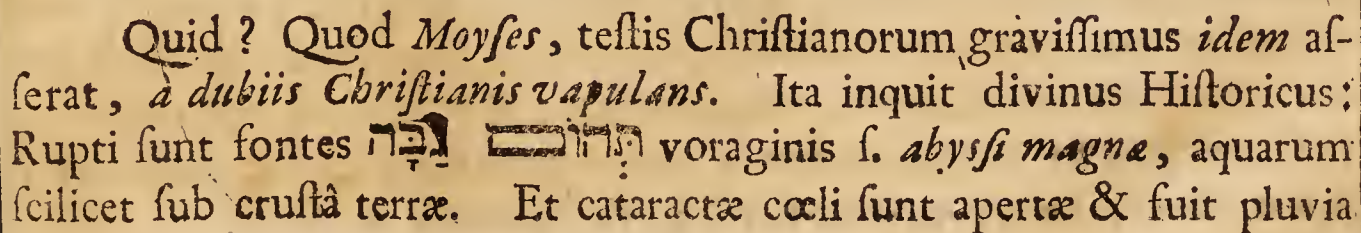 Quid? Quod Moyſes, teſtis Chriſtianorum graviſſimus idem aſ-
ſerat, à dubiis Chriſtianis vapulans. Ita inquit divinus Hiſtoricus:
Rupti ſunt fontes תְּהוֹם רַבָּה voraginis ſ. abyſſi magnæ, aquarum
ſcilicet ſub cruſtâ terræ. Et cataractæ cœli ſunt apertæ & fuit pluvia